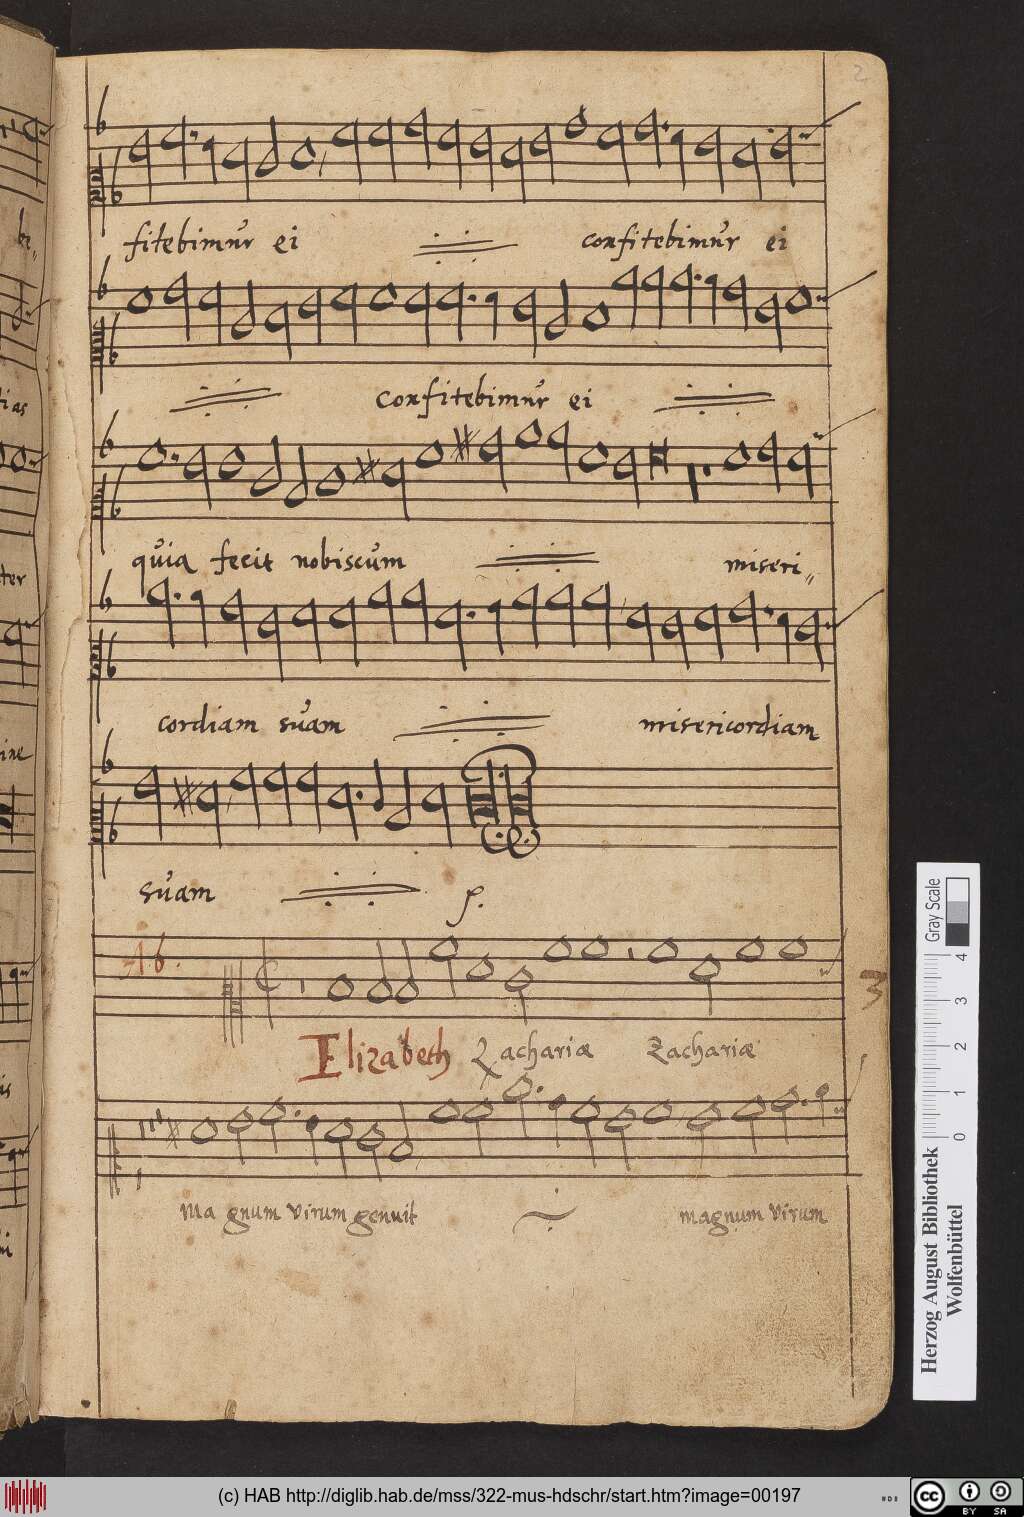 2
fitebimur ei confitebimur ei
confitebimur ei
quia fecit nobiscum miseri
cordiam suam misericordiam
suam
Elizabeth Zachariæ Zachariæ
3
magnum virum genuit magnum virum
bi
tias
ter
ine
Gray Scale
0 1 2 3 4
Herzog August Bibliothek
Wolfenbüttel
(c) HAB http://diglib.hab.de/mss/322-mus-hdschr/start.htm?image=00197
cc BY SA